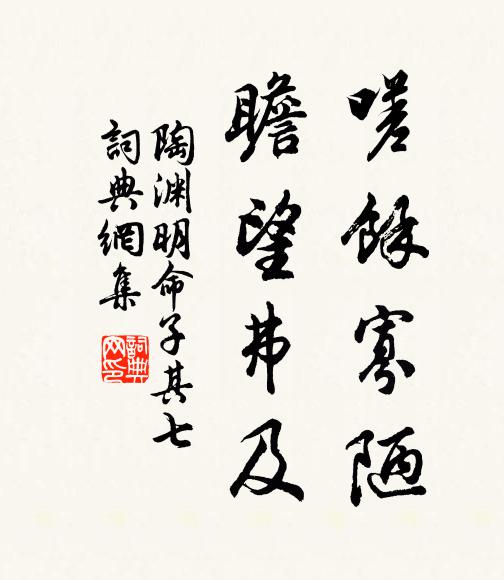 嗟餘寡陋
瞻望弗及
陶渊明命子其七
詞典網集
詞典网印